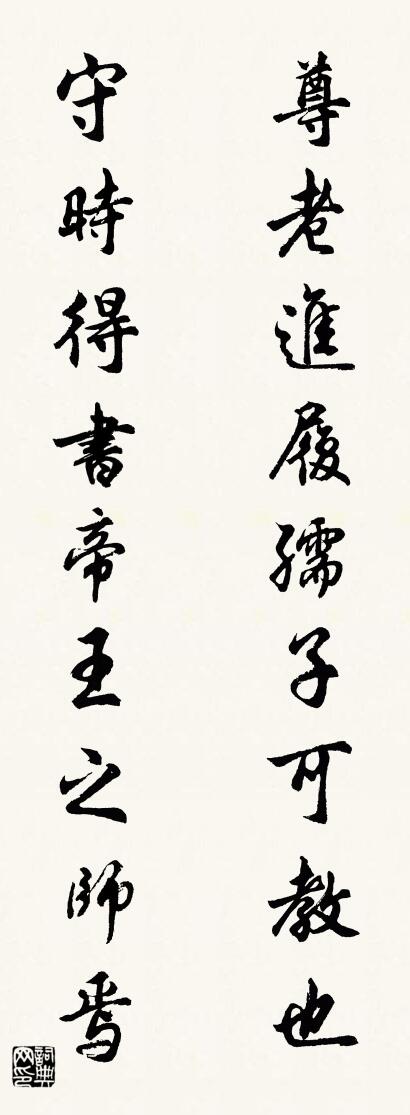 尊老進履孺子可教也
守時得書帝王之師焉
詞典網印